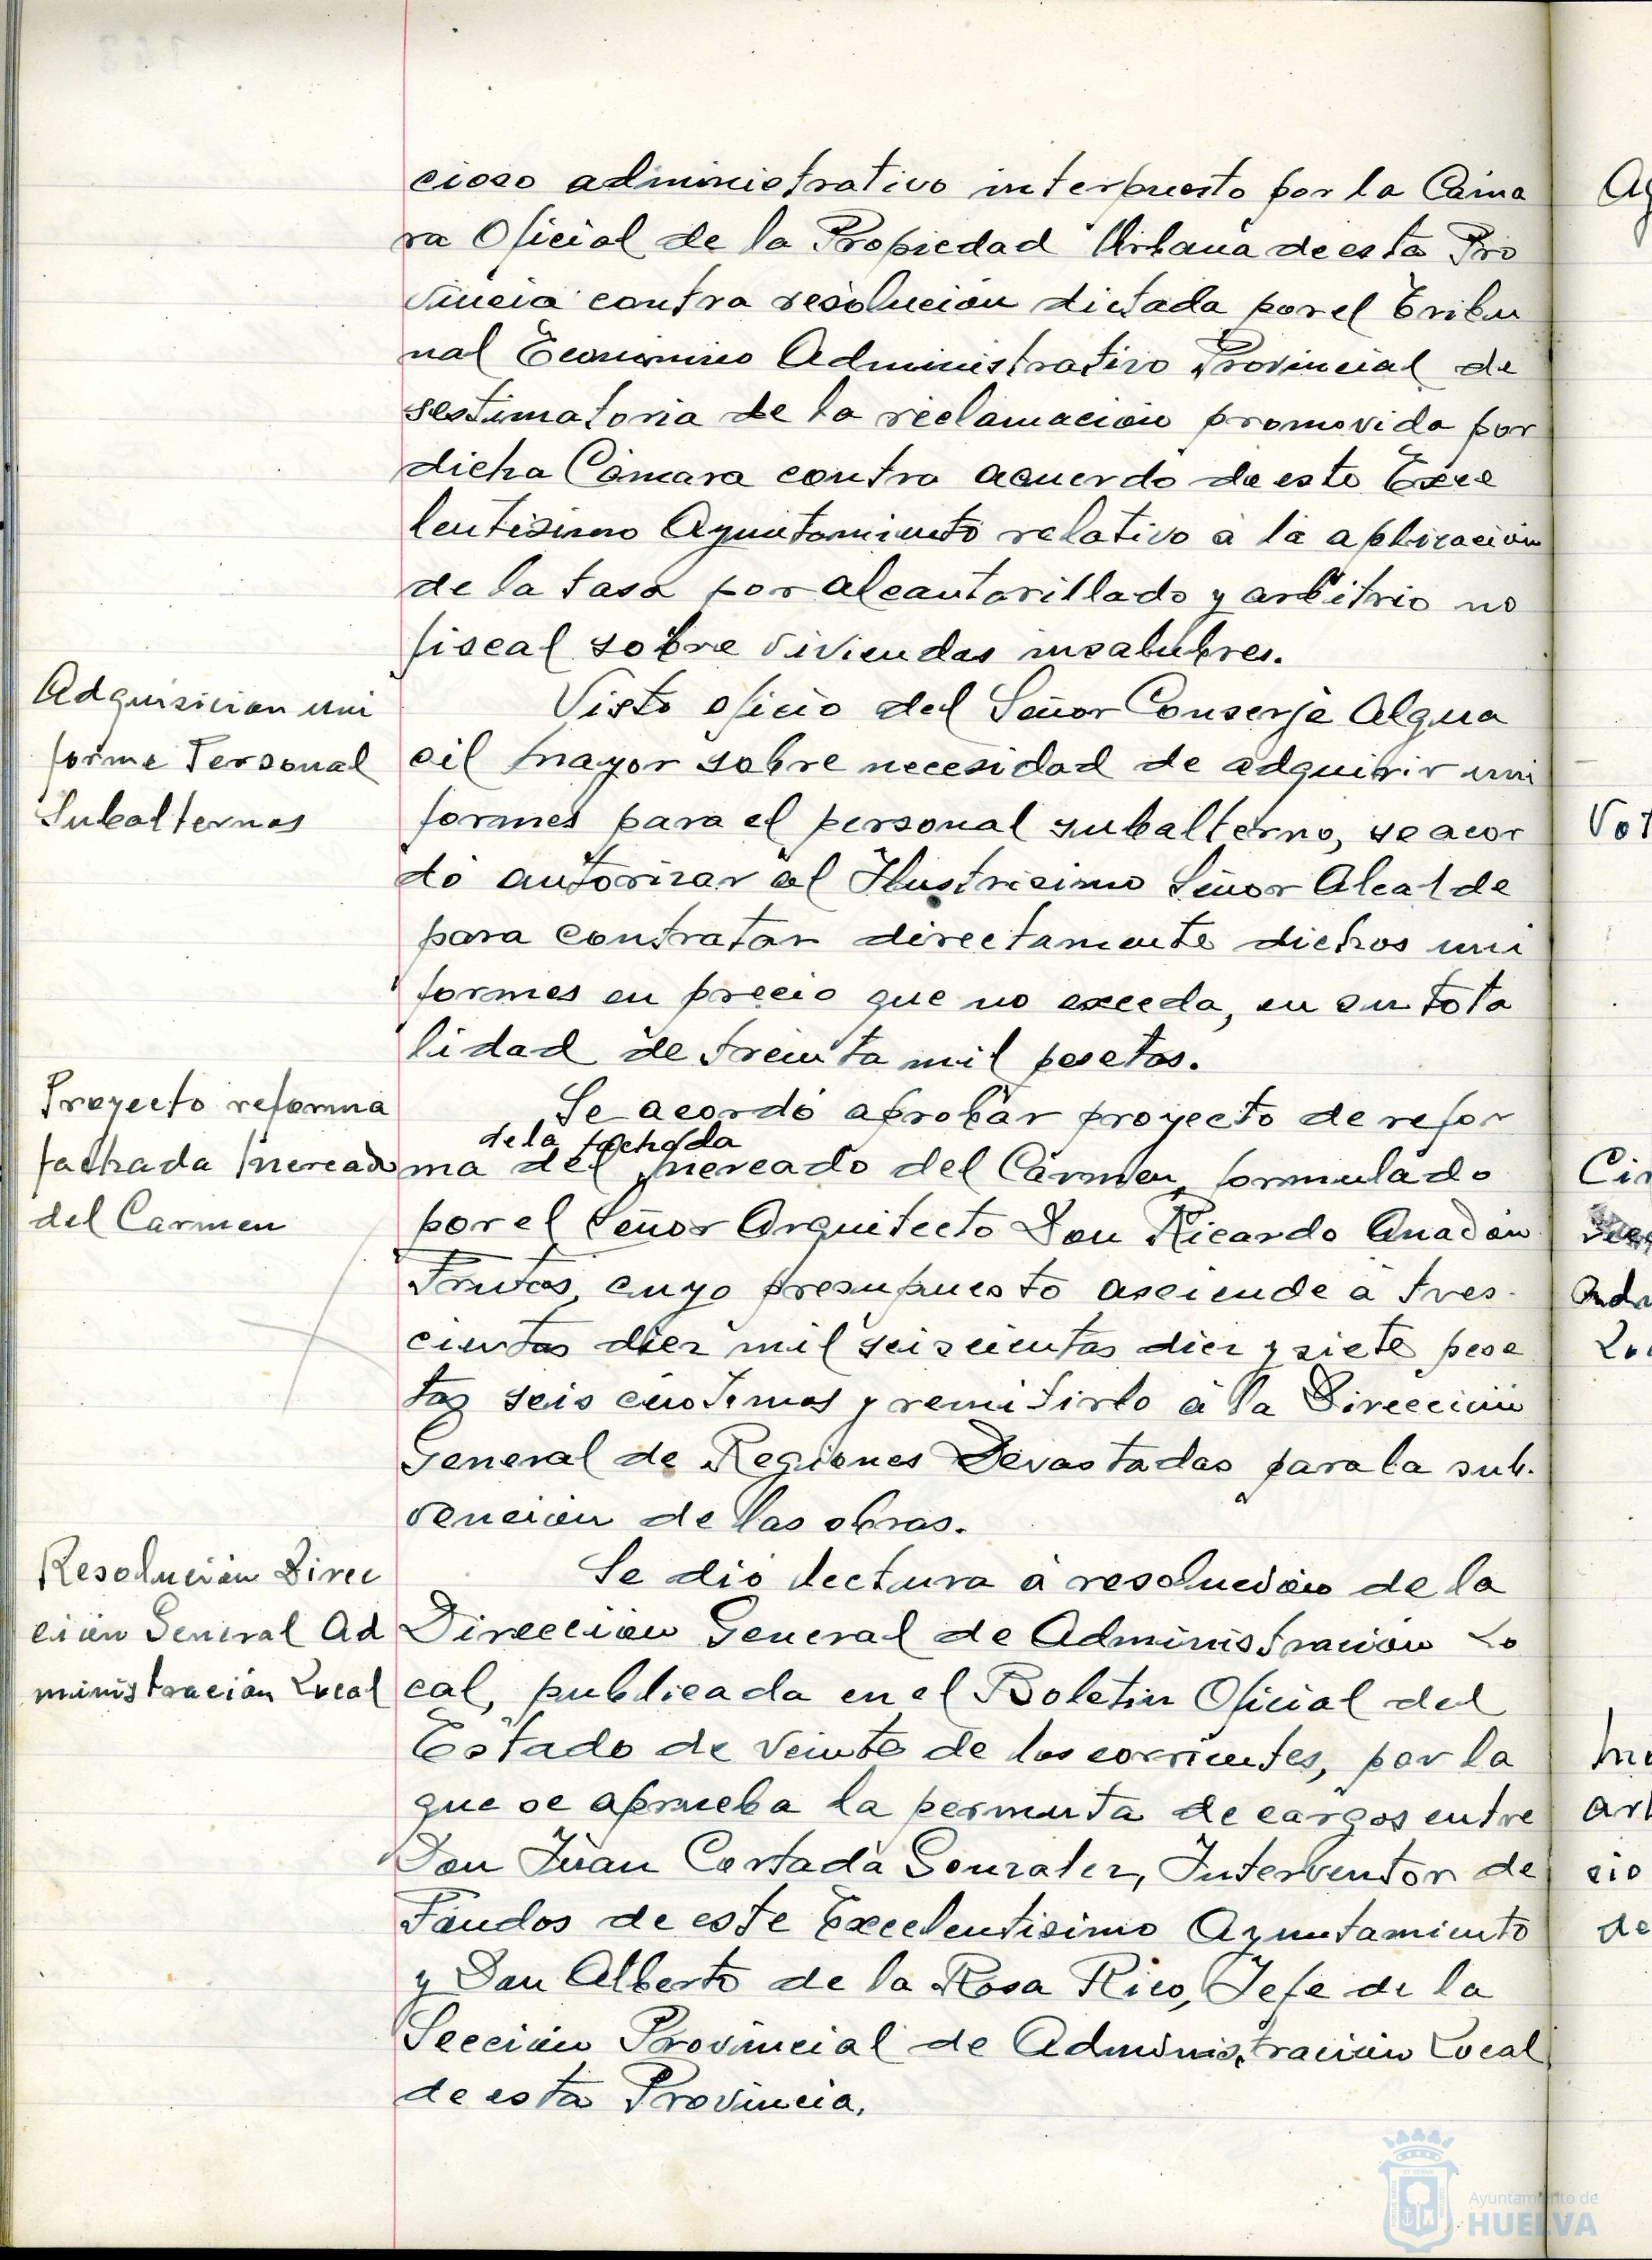 cioso administrativo interpuesto por la Cáma
ra Oficial de la Propiedad Urbana de esta Pro
vincia contra resolución dictada por el Tribu
nal Económico Administrativo Provincial de
sestimatoria de la reclamación promovida por
dicha Cámara contra acuerdo de este Exce
lentísimo Ayuntamiento relativo a la aplicación
de la tasa por alcantarillado y arbitrio no
fiscal sobre viviendas insalubres.
Adquisición uni
forme Personal
Subalternos
Visto oficio del Señor Conserje Algua
cil Mayor sobre necesidad de adquirir uni
formes para el personal subalterno, se acor
dó autorizar al Ilustrísimo Señor Alcalde
para contratar directamente dichos uni
formes en precio que no exceda, en su tota
lidad de treinta mil pesetas.
Proyecto reforma
fachada Mercado
del Carmen
Se acordó aprobar proyecto de refor
de la fachada
ma del Mercado del Cármen, formulado
por el Señor Arquitecto Don Ricardo Anadón
Frutos, cuyo presupuesto asciende á tres-
cientas diez mil seiscientas diez y siete pese
tas seis céntimos y remitirlo á la Dirección
General de Regiones Devastadas para la sub-
vención de las obras.
Resolución Direc
ción General Ad
ministración Local
Se dió lectura á resolución de la
Dirección General de Administración Lo
cal, publicada en el Boletín Oficial del
Estado de veinte de los corrientes, por la
que se aprueba la permuta de cargos entre
Don Juan Cortada Gonzalez, Interventor de
Fondos de este Excelentísimo Ayuntamiento
y Don Alberto de la Rosa Rico, Jefe de la
Sección Provincial de Administración Local
de esta Provincia.
Ayuntamiento de
HUELVA